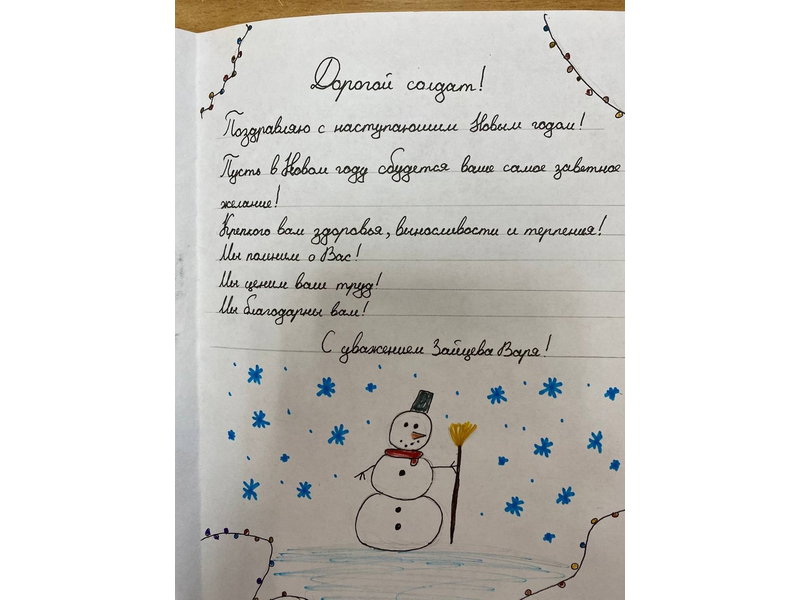 Дорогой солдат!
Поздравляю с наступающим Новым годом!
Пусть в Новом году сбудется ваше самое заветное
желание!
Крепкого вам здоровья, выносливости и терпения!
Мы помним о Вас!
Мы ценим ваш труд!
Мы благодарны вам!
С уважением Зайцева Варя!